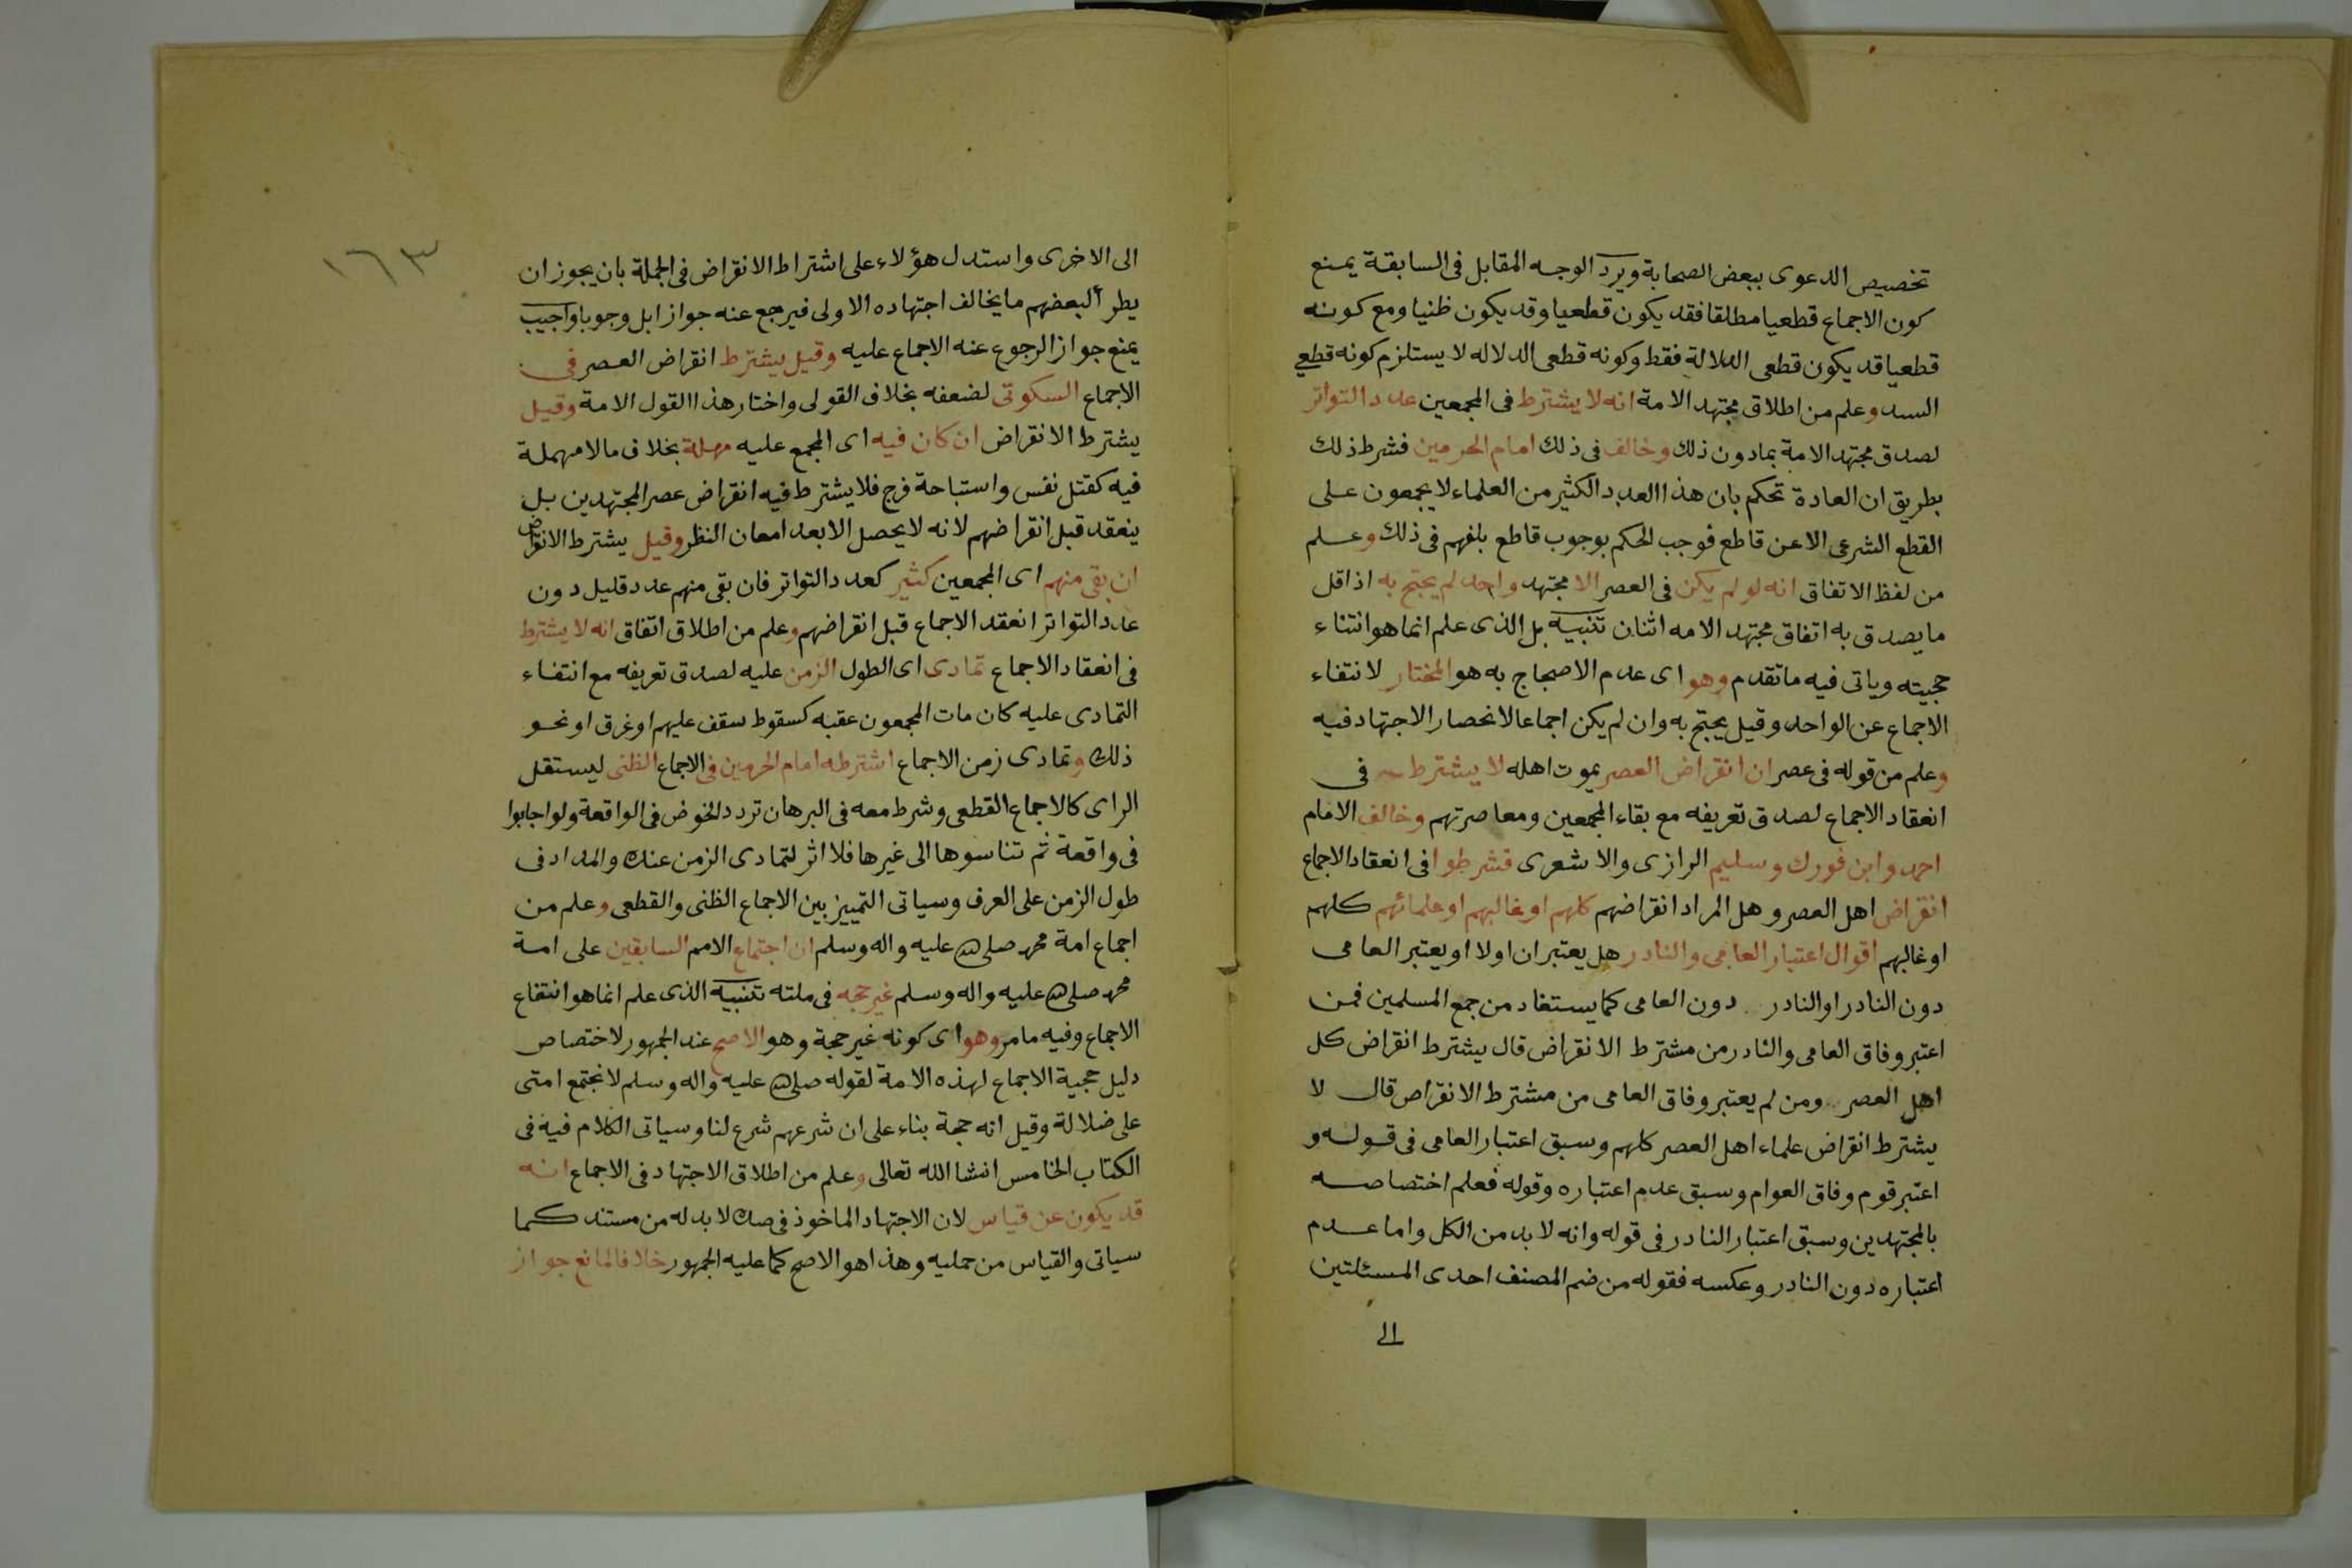 تخصيص الدعوى ببعض الصحابة ويرد الوجه المقابل فى السابقة يمنع
كون الاجماع قطعيا مطلقا فقد يكون قطعيا وقد يكون ظنيا ومع كونه
قطعيا قد يكون قطعى الدلالة فقط وكونه قطعى الدلاله لا يستلزم كونه قطعي
السند وعلم من اطلاق مجتهد الامة انه لا يشترط فى المجمعين عدد التواتر
لصدق مجتهد الامة بمادون ذلك وخالف فى ذلك امام الحرمين فشرط ذلك
بطريق ان العادة تحكم بان هذا العدد الكثير من العلماء لا يجمعون على
القطع الشرعى الا عن قاطع فوجب الحكم بوجوب قاطع بلغهم فى ذلك وعلم
من لفظ الاتفاق انه لو لم يكن فى العصر الا مجتهد واحد لم يحتج به اذ اقل
ما يصدق به اتفاق مجتهد الامه اثنان تنبيه بل الذى علم انما هو انتفاء
حجيته وياتى فيه ماتقدم وهو اى عدم الاحتجاج به هو المختار لانتفاء
الاجماع عن الواحد وقيل يحتج به وان لم يكن اجماعا لانحصار الاجتهاد فيه
وعلم من قوله فى عصر ان انقراض العصر بموت اهله لا يشترط فى
انعقاد الاجماع لصدق تعريفه مع بقاء المجمعين ومعاصرتهم وخالف الامام
احمد وابن فورك وسليم الرازى والاشعرى فشرطوا فى انعقاد الاجماع
انقراض اهل العصر وهل المراد انقراضهم كلهم او غالبهم او علمائهم كلهم
او غالبهم اقوال اعتبار العامى والنادر هل يعتبران اولا او يعتبر العامى
دون النادر او النادر دون العامى كما يستفاد من جمع المسلمين فمن
اعتبر وفاق العامى والنادر من مشترط الانقراض قال يشترط انقراض كل
اهل العصر ومن لم يعتبر وفاق العامى من مشترط الانقراض قال لا
يشترط انقراض علماء اهل العصر كلهم وسبق اعتبار العامى فى قوله و
اعتبر قوم وفاق العوام وسبق عدم اعتباره وقوله فعلم اختصاصه
بالمجتهدين وسبق اعتبار النادر فى قوله وانه لا بد من الكل واما عدم
اعتباره دون النادر وعكسه فقوله من ضم المصنف احدى المسئلتين
الى
١٦٣
الى الاخرى واستدل هؤلاء على اشتراط الانقراض فى الجملة بان يجوز ان
يطرأ لبعضهم ما يخالف اجتهاده الاولى فيرجع عنه جوازا بل وجوبا واجيب
يمنع جواز الرجوع عنه الاجماع عليه وقيل يشترط انقراض العصر فى
الاجماع السكوتى لضعفه بخلاف القولى واختار هذا القول الامة وقيل
يشترط الانقراض ان كان فيه اى المجمع عليه مهلة بخلاف مالا مهملة
فيه كقتل نفس واستباحة فرج فلا يشترط فيه انقراض عصر المجتهدين بل
ينعقد قبل انقراضهم لانه لا يحصل الا بعد امعان النظر وقيل يشترط الانقراض
ان بقى منهم اى المجمعين كثير كعدد التواتر فان بقى منهم عدد قليل دون
عدد التواتر انعقد الاجماع قبل انقراضهم وعلم من اطلاق اتفاق انه لا يشترط
فى انعقاد الاجماع تمادى اى الطول الزمن عليه لصدق تعريفه مع انتفاء
التمادى عليه كان مات المجمعون عقبه كسقوط سقف عليهم او غرق او نحو
ذلك وتمادى زمن الاجماع اشترطه امام الحرمين فى الاجماع الظنى ليستقل
الراى كالاجماع القطعى وشرط معه فى البرهان تردد الخوض فى الواقعة ولو اجابوا
فى واقعة ثم تناسوها الى غيرها فلا اثر لتمادى الزمن عنده والمداد فى
طول الزمن على العرف وسياتى التمييز بين الاجماع الظنى والقطعى وعلم من
اجماع امة محمد صلى الله عليه واله وسلم ان اجتماع الامم السابقين على امة
محمد صلى الله عليه واله وسلم غير حجه فى ملته تنبيه الذى علم انما هو انتقاع
الاجماع وفيه مامر وهو اى كونه غير حجة وهو الاصح عند الجمهور لاختصاص
دليل حجية الاجماع لهذه الامة لقوله صلى الله عليه واله وسلم لا تجتمع امتى
على ضلالة وقيل انه حجة بناء على ان شرعهم شرع لنا وسياتى الكلام فيه فى
الكتاب الخامس انشا الله تعالى وعلم من اطلاق الاجتهاد فى الاجماع انه
قد يكون عن قياس لان الاجتهاد الماخوذ فى صده لا بد له من مستند كما
سياتى والقياس من حمليه وهذا هو الاصح كما عليه الجمهور خلافا لمانع جواز